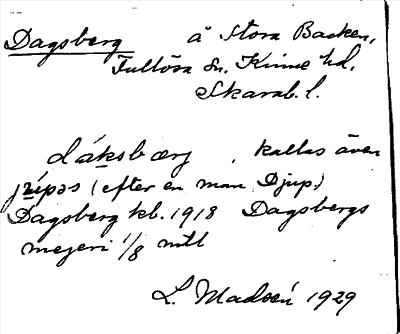 Dagsberg å Stora Backen,
Fullösa sn. Kinne hd.
Skarab. l.
dáksbærj, kallas även
jʉ́pəs (efter en man Djup.)
Dagsberg kb. 1918 Dagsbergs
mejeri 1/8 mtl
L. Madsén 1929